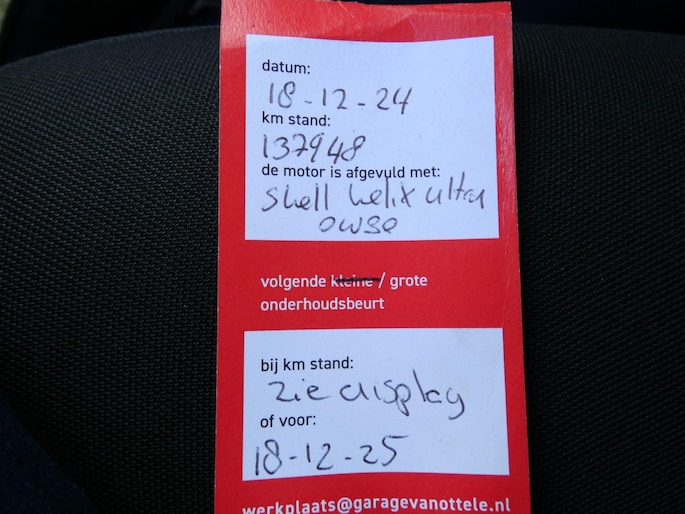 datum:
18-12-24
km stand:
137948
de motor is afgevuld met:
Shell helix ultra
0W30
volgende kleine / grote
onderhoudsbeurt
bij km stand:
zie display
of voor:
18-12-25
werkplaats@garagevanottele.nl